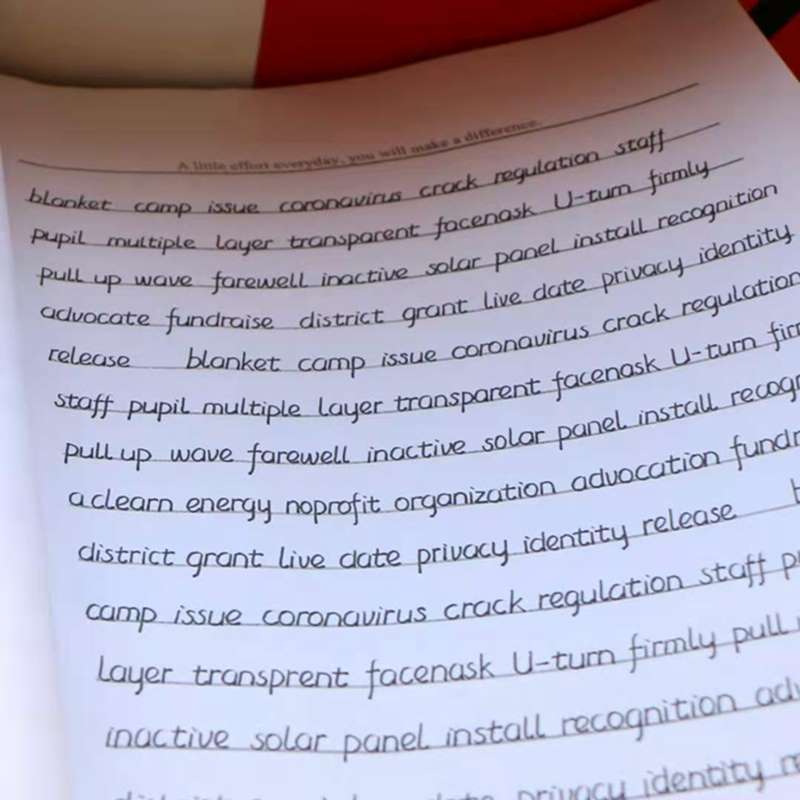 A little effort everyday, you will make a difference.
blanket camp issue coronavirus crack regulation staff
pupil multiple layer transparent facenask U-turn firmly
pull up wave farewell inactive solar panel install recognition
advocate fundraise district grant live date privacy identity
release blanket camp issue coronavirus crack regulation
staff pupil multiple layer transparent facenask U-turn
pull up wave farewell inactive solar panel install
aclearn energy noprofit organization advocation
district grant live date privacy identity release
camp issue coronavirus crack regulation staff
layer transprent facenask U-turn firmly pull
inactive solar panel install recognition
privacy identity